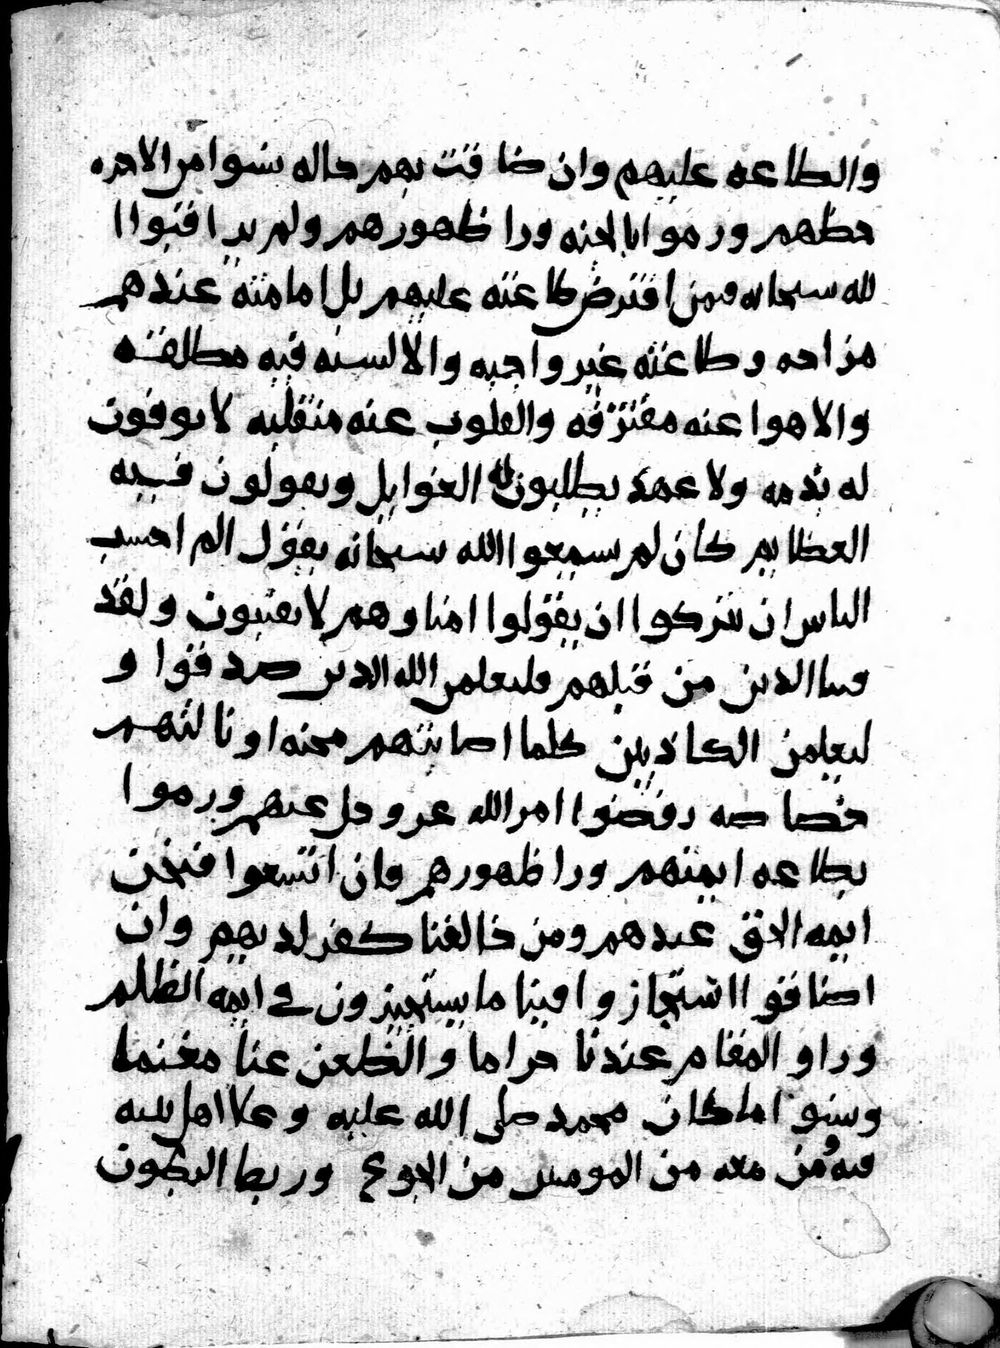 والطاعه عليهم وان ضاقت بهم حاله نسوا من الاخره
حظهم ورموا بالمحنه ورا ظهورهم ولم يراقبوا ا
لله سبحانه فيمن افترض طاعته عليهم بل امامته عندهم
مزاحه وطاعته غير واجبه والالسنه فيه مطلقه
والاهوا عنه مفترقه والقلوب عنه منقلبه لا يوفون
له بذمه ولا عهد يطلبون له الغوايل ويقولون فيه
العظايم كان لم يسمعوا الله سبحانه يقول الم احسب
الناس ان يتركوا ان يقولوا امنا وهم لا يفتنون ولقد
فتنا الذين من قبلهم فليعلمن الله الذين صدقوا و
ليعلمن الكاذبين كلما اصابتهم محنه او نالتهم
خصاصه رفضوا امر الله عز وجل عنهم ورموا
بطاعه ايمتهم ورا ظهورهم وان اتسعوا فنحن
ايمه الحق عندهم ومن خالفنا كفر لديهم وان
اضاقوا استجازوا فينا ما يستجيزون في ايمه الظلم
وراو المقام عندنا حراما والظعن عنا مغنما
ونسوا ما كان محمد صلى الله عليه وعلا اهل بيته
فيه ومن معه من المومنين من الجوع وربط البطون